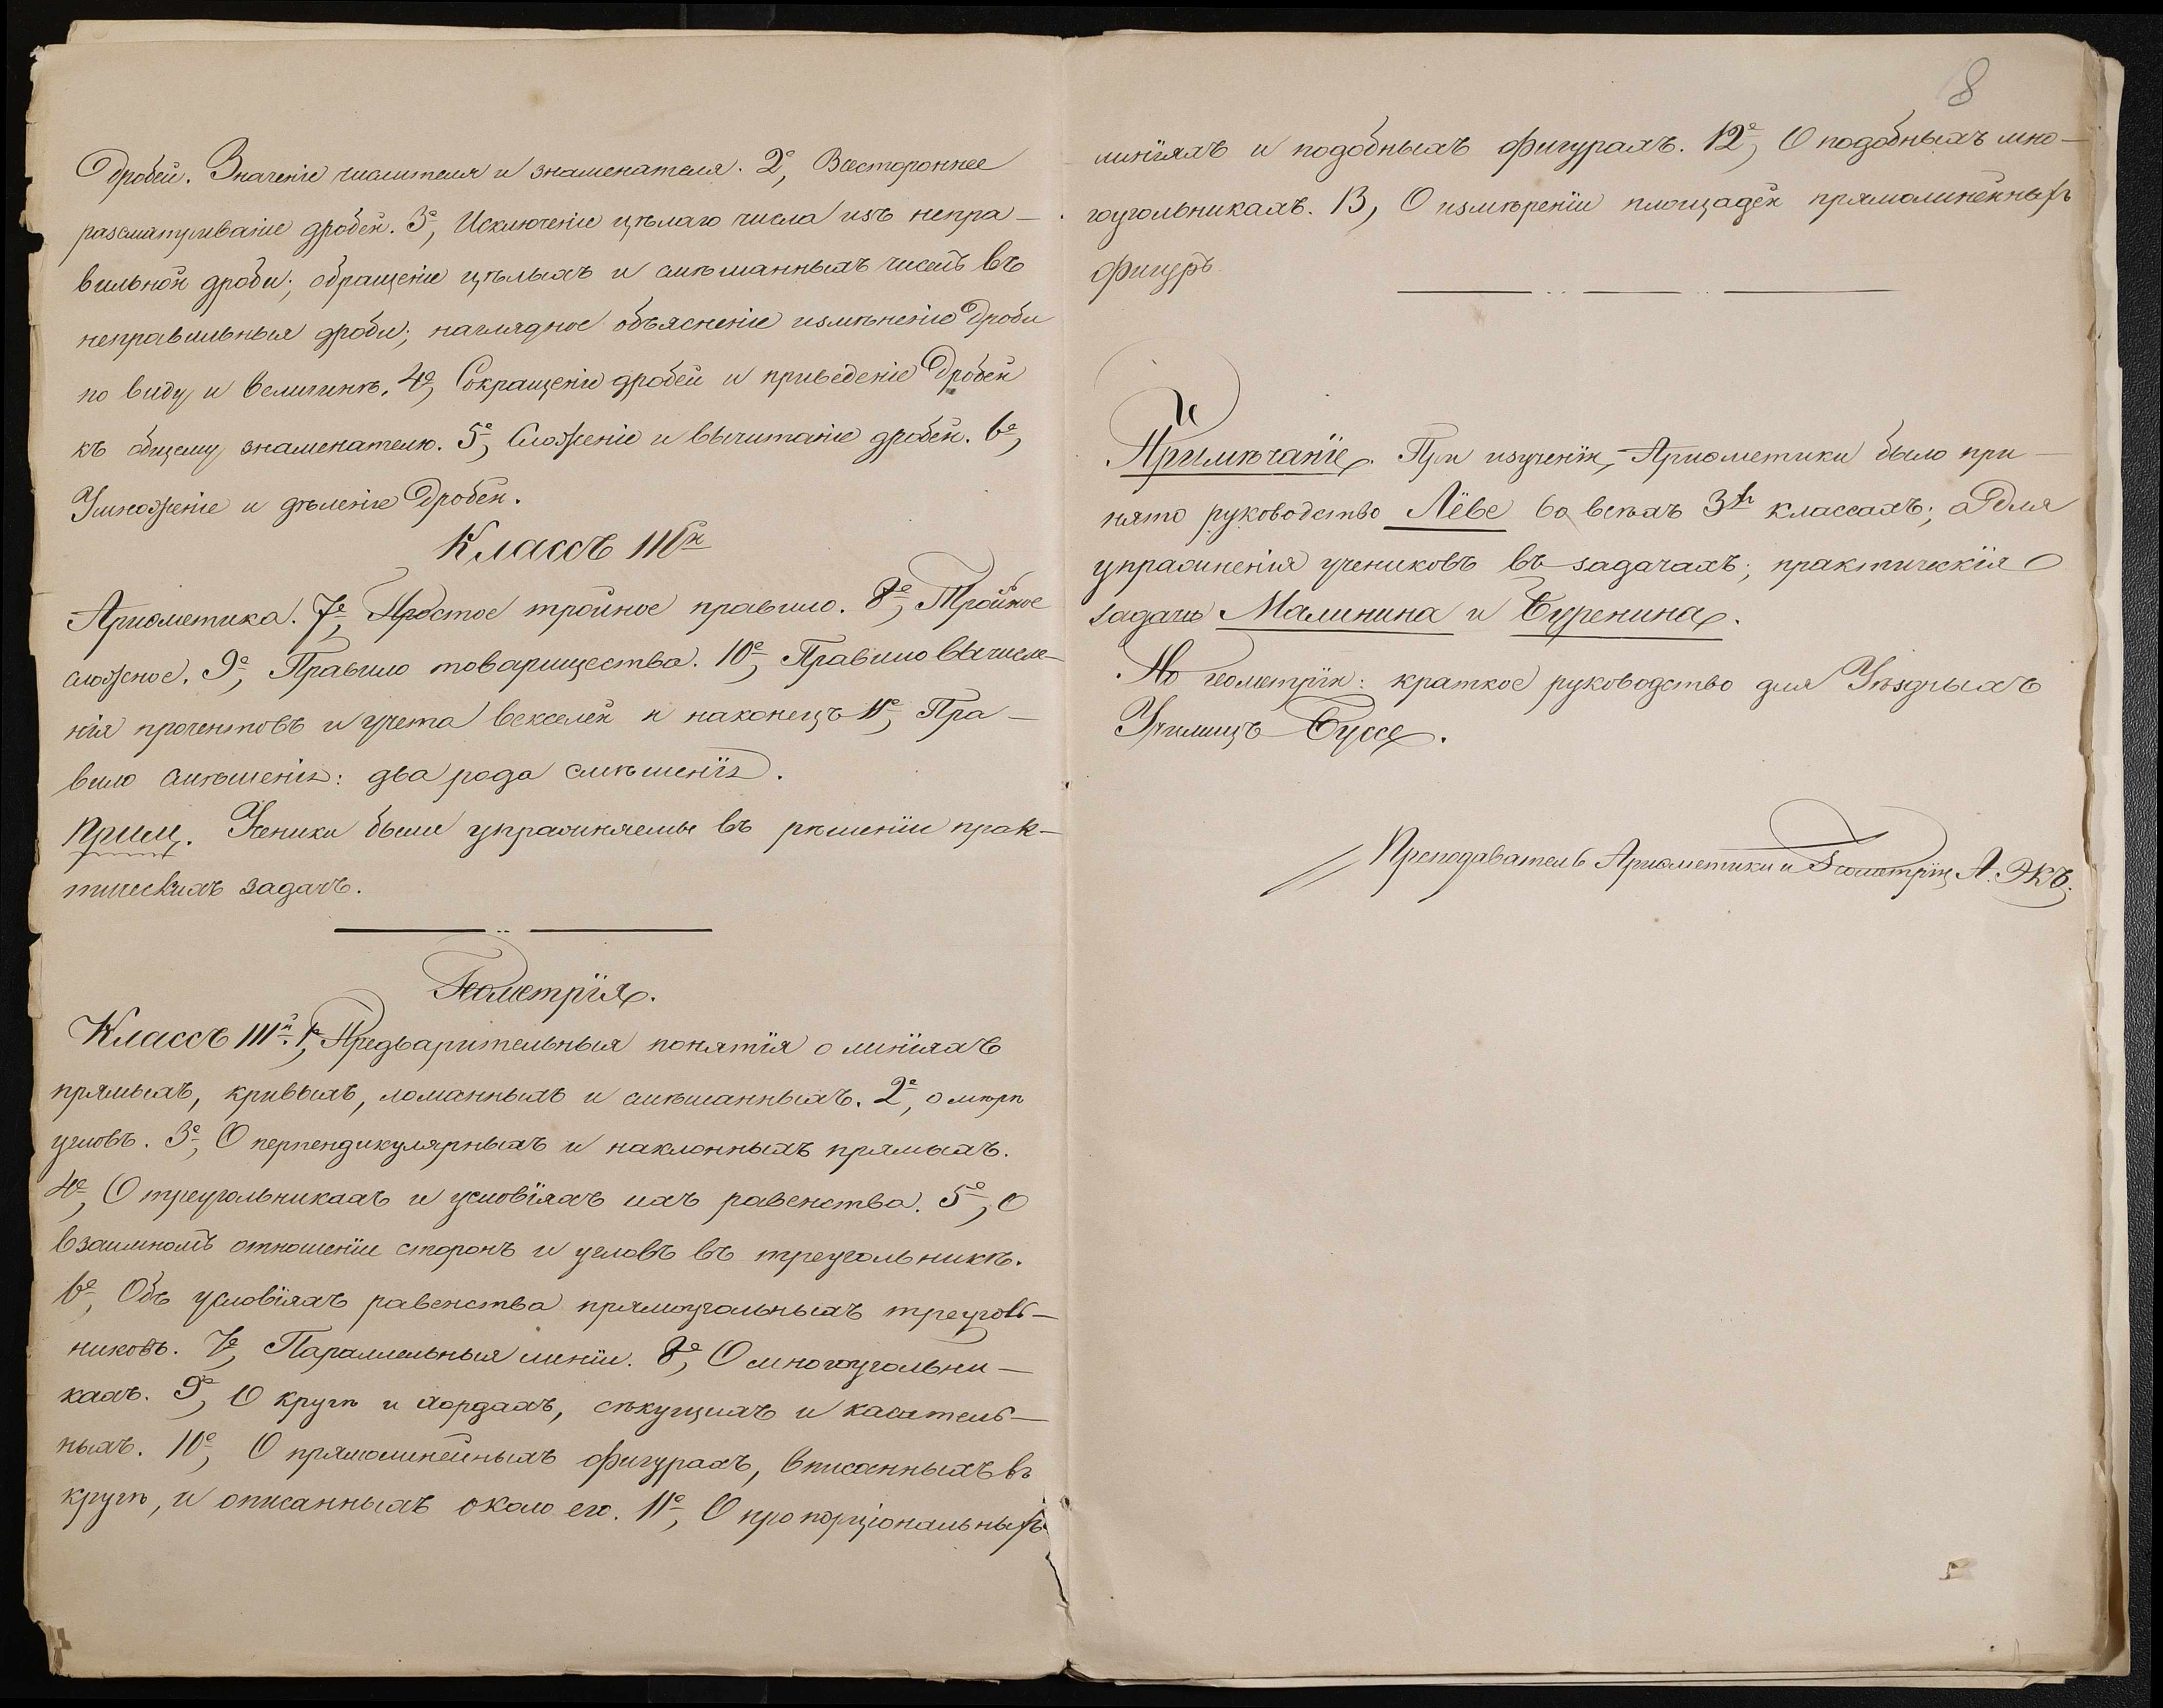 дробей. Значеніе числителя и знаменателя. 2е, Всестороннее
разсматриваніе дробей. 3е, Исключеніе цѣлаго числа изъ непра-
вильной дроби; обращеніе цѣлыхъ и смѣшанныхъ чиселъ въ
неправильныя дроби; наглядное объясненіе измѣненію дроби
по виду и величинѣ. 4е, Сокращеніе дробей и приведеніе дробей
къ общему знаменателю. 5е, Сложеніе и вычитаніе дробей. 6е,
Умноженіе и дѣленіе дробей.
Классъ IIIй
Ариѳметика. 7е, Простое тройное правило. 8е, Тройное
сложное. 9е, Правило товарищества. 10е, Правило вычисле-
нія процентовъ и учета векселей и наконецъ 11е, Пра-
вило смѣшенія: два рода смѣшенія.
Прим. Ученики были упражняемы въ рѣшеніи прак-
тическихъ задачъ.
Геометрія.
Классъ IIIй. 1е, Предварительныя понятія о линіяхъ
прямыхъ, кривыхъ, ломанныхъ и смѣшанныхъ. 2е, о мѣрѣ
угловъ. 3е, О перпендикулярныхъ и наклонныхъ прямыхъ.
4е, О треугольникахъ и условіяхъ ихъ равенства. 5е, О
взаимномъ отношеніи сторонъ и угловъ въ треугольникѣ.
6е, Объ условіяхъ равенства прямоугольныхъ треуголь-
никовъ. 7е, Параллельныя линіи. 8е, О многоугольни-
кахъ. 9е, О кругѣ и хордахъ, сѣкущихъ и касатель-
ныхъ. 10е, О прямолинейныхъ фигурахъ, вписанныхъ въ
кругѣ, и описанныхъ около его. 11е, О пропорціональныхъ
8
линіяхъ и подобныхъ фигурахъ. 12е, О подобныхъ мно-
гоугольникахъ. 13, О измѣреніи площадей прямолинейныхъ
фигуръ.
Примѣчаніе. При изученіи Ариѳметики было при-
нято руководство Лёве во всѣхъ 3хъ классахъ; а для
упражненія учениковъ въ задачахъ; практическія
задачи Малинина и Буренина.
По геометріи: краткое руководство для Уѣздныхъ
Училищъ Буссе.
Преподаватель Ариѳметики и Геометріи А. Экъ.